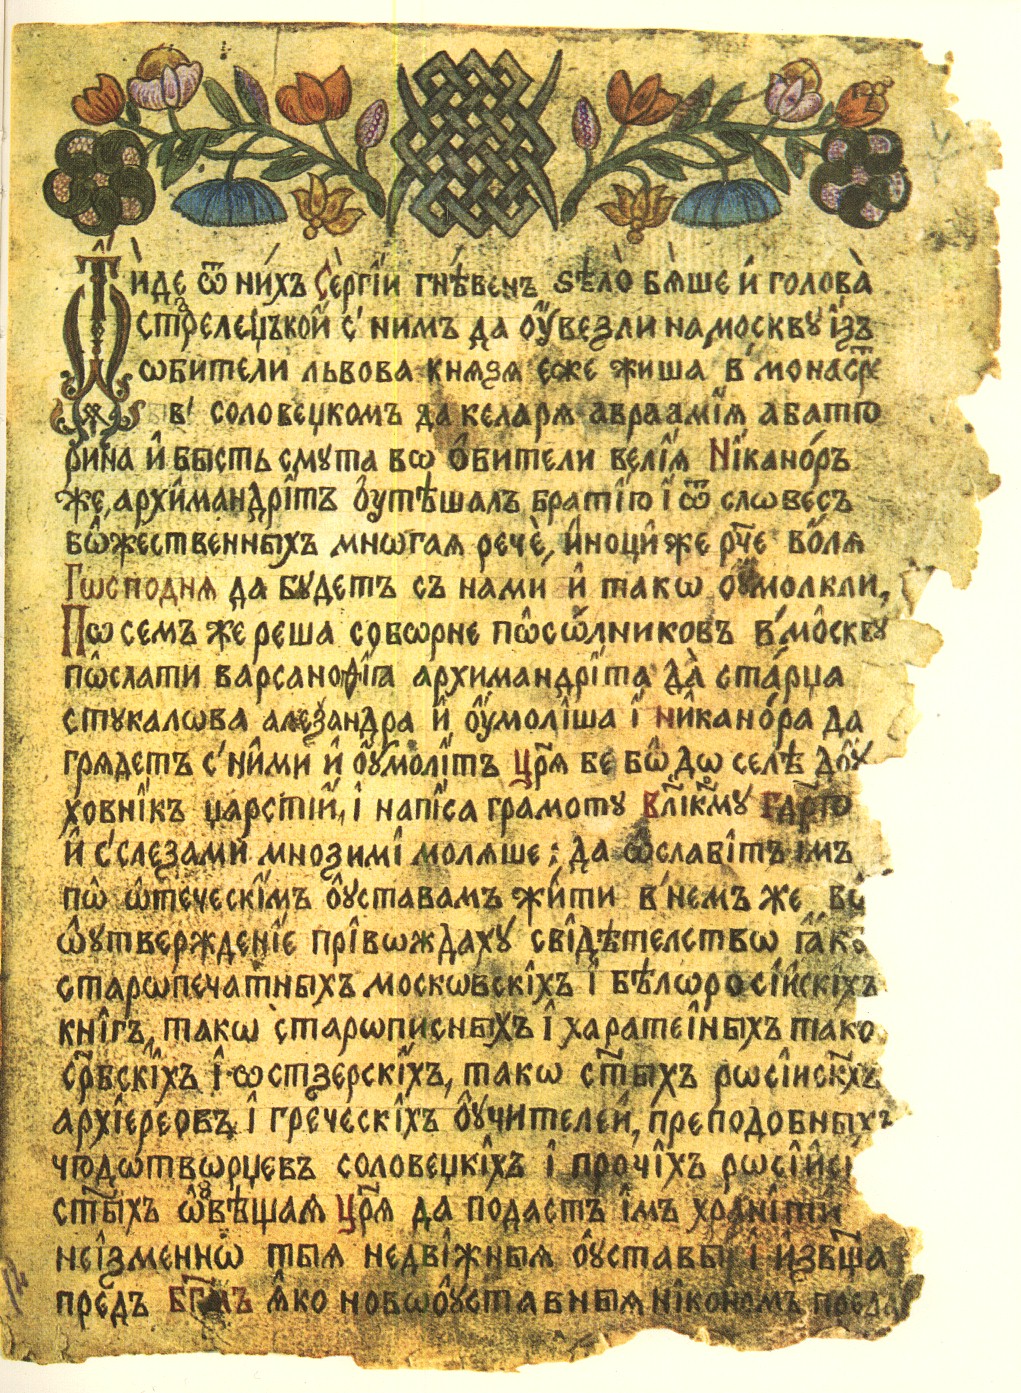 Ѿиде ѿ ни́хъ Се́ргїи гнѣ́венъ ѕѣло̀ бѧ́ше и́ голова̀
стрелецъкой с' нимъ да ѹвезли на москву їзъ
ѡбители львова кнѧзѧ еже жиша в' монастре
в' соловецкомъ да келарѧ авраамїѧ а батю
рина и̂ бысть смута вѡ о̂бители велїѧ Нїкано́ръ
же, архимандрїтъ ѹтѣшалъ братїю і ѿ словесъ
бѡ̂жественныхъ мнѡгаѧ рече̂, и̂ноци же рч҃е во̂лѧ
Гѡсподнѧ да будетъ съ нами и̂ такѡ ѹмолкли,
Пѡ семъ же реша собѡрне пѡ̂сѡ̂лниковъ в' мо̂скву
пѡ̂слати варсаноѳїа архимандрїта да̀ ста́рца
стукалѡва алеѯандра и̂ ѹмолїша і никано́ра да
грѧдетъ с' ни̂ми и̂ ѹмолїтъ цр҃ѧ бе бѡ̂ дѡ селѣ дѹ
ховнїкъ царстїй, і напїса грамоту вл҃їкм҃у гдр҃ю
и̂ с' слезами мнозимї молѧше: да ѡ̂славїтъ їмъ
пѡ̂ ѡ̂теческїмъ ѹставамъ жи̂ти в' немъ же
ѡ̂утвержденїе прївѡждаху свїдѣтелствѡ ꙗко
старѡпечатныхъ москѡвскїхъ ї бѣлѡросїйскїхъ
кнїгъ, такѡ старѡписныхъ ї харатейныхъ тако
ср҃бскїхъ і ѡстзерскїхъ, такѡ ст҃ыхъ рѡсїискхъ
архїереовъ ї греческїхъ ѹчителей, преподобныхъ
чюдѡтвѡрцевъ соловецкїхъ ї прочїхъ рѡсїйскї
ст҃ыхъ ѡ̂вѣщаѧ цр҃ѧ да подастъ їмъ хранїтй
неїзменнѡ тыѧ недвїжныѧ ѹставы ї
предъ Бг҃мъ ꙗко новѡѹставныѧ нїкономъ преда